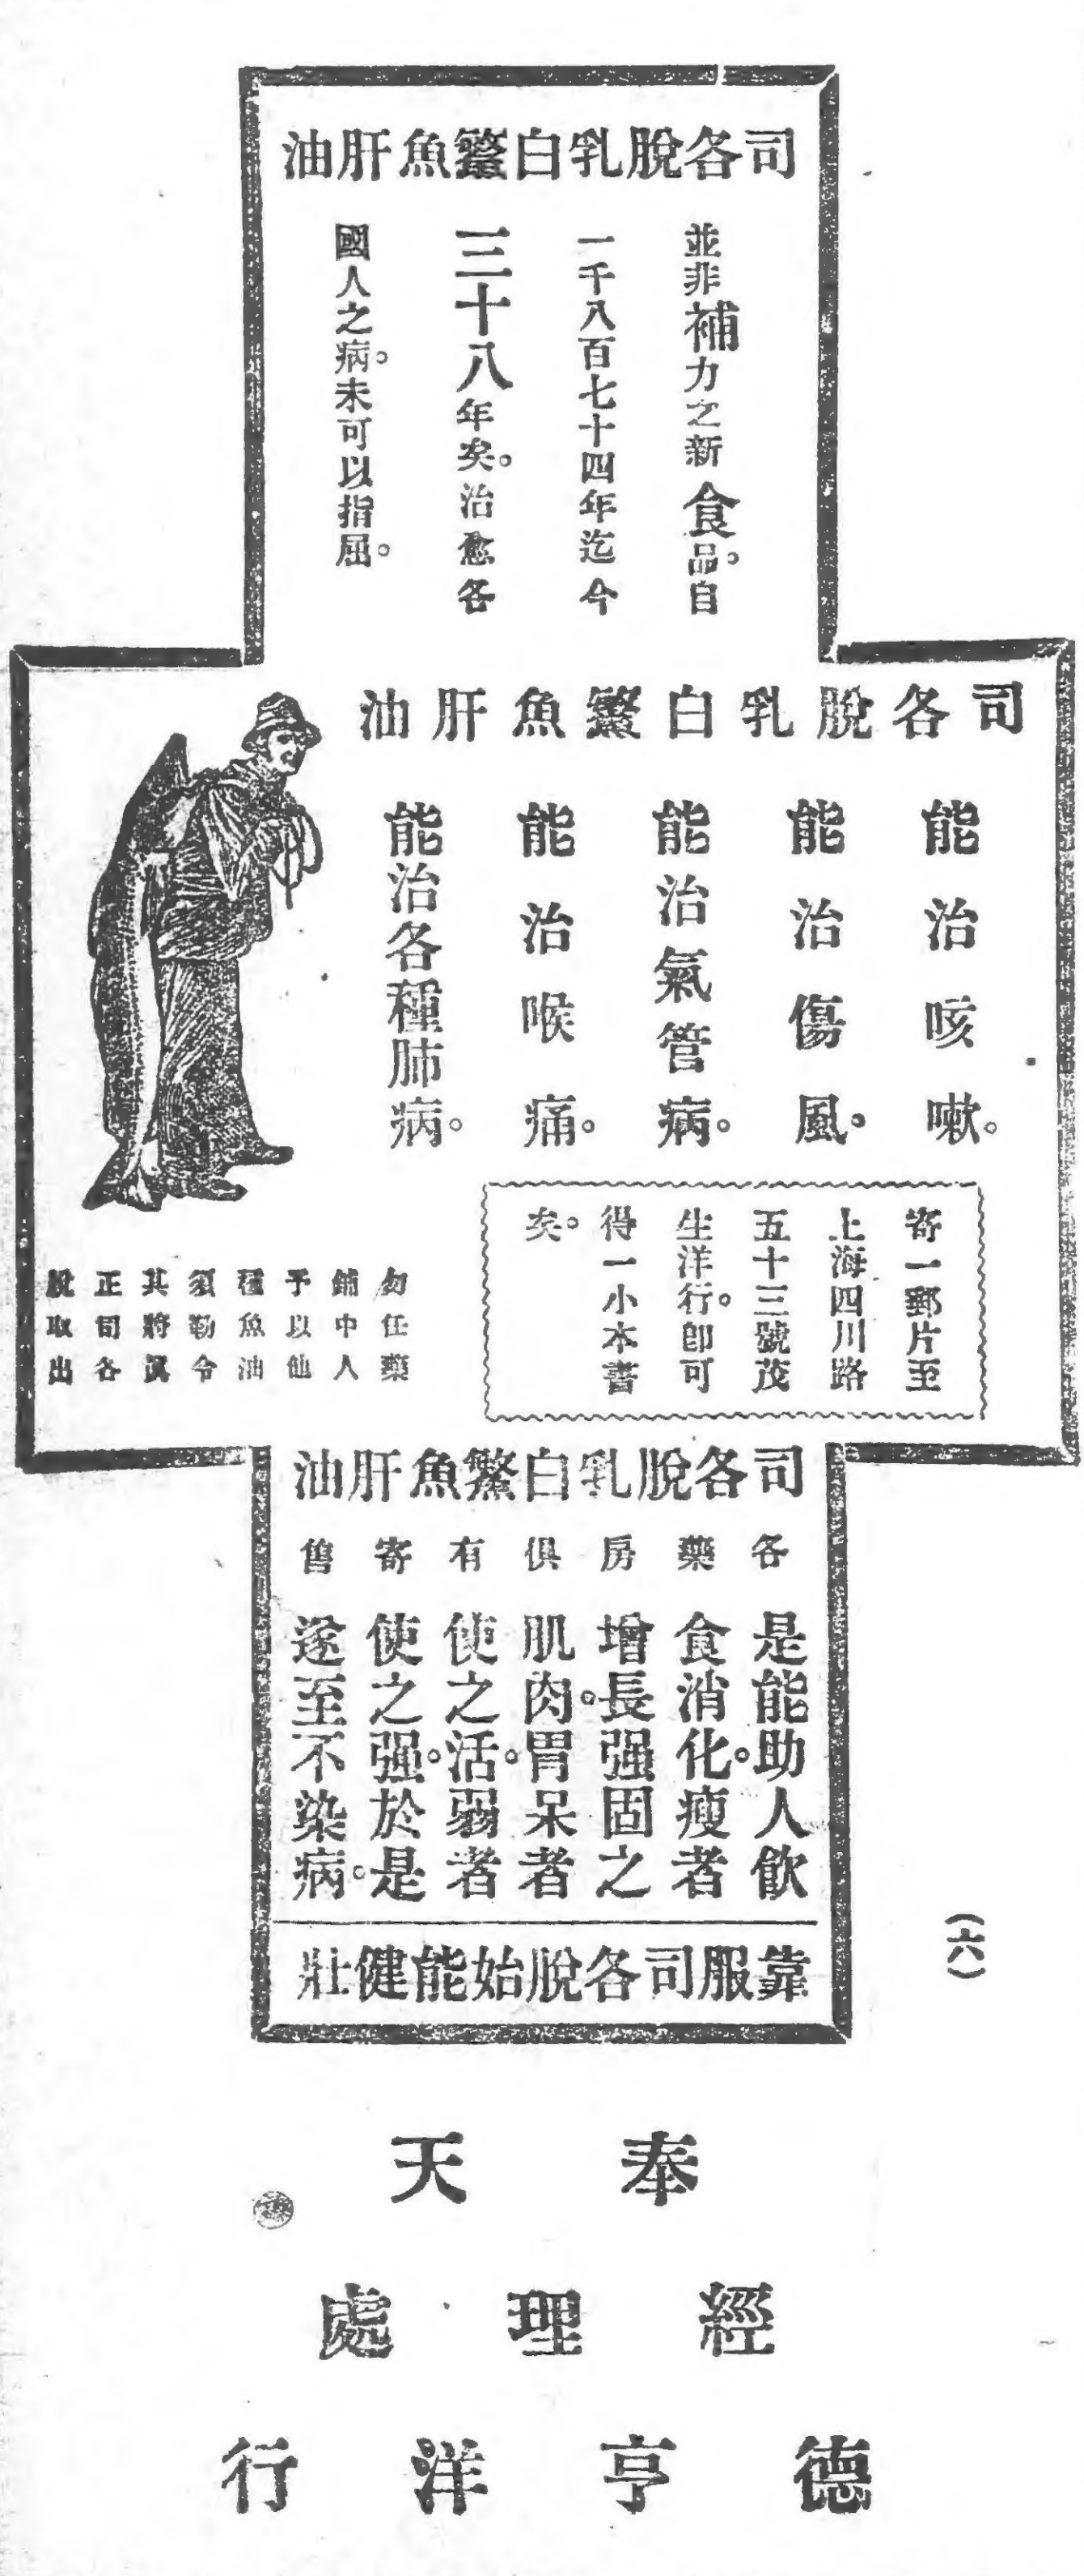 司各脫乳白鰵魚肝油
並非補力之新食品。自
一千八百七十四年迄今
三十八年矣。治愈各
國人之病。未可以指屈。
司各脫乳白鰵魚肝油
能治咳嗽。
能治傷風。
能治氣管病。
能治喉痛。
能治各種肺病。
寄一郵片至
上海四川路
五十三號茂
生洋行。即可
得一小本書
矣。
勿任藥
鋪中人
予以他
種魚油
須勒令
其將眞
正司各
脫取出
司各脫乳白鰵魚肝油
各藥房俱有寄售
是能助人飲
食消化。瘦者
增長强固之
肌肉。胃呆者
使之活。弱者
使之强。於是
遂至不染病。
靠服司各脫始能健壯
(六)
奉天
經理處
德亨洋行